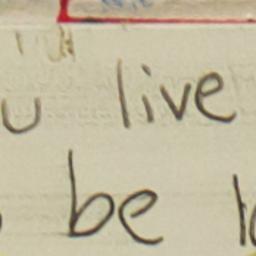 u live
be